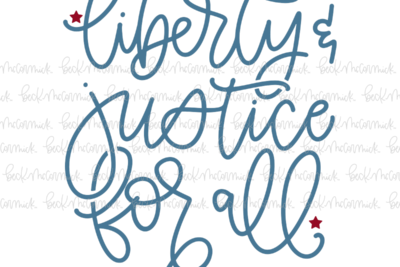 liberty &
justice
for all